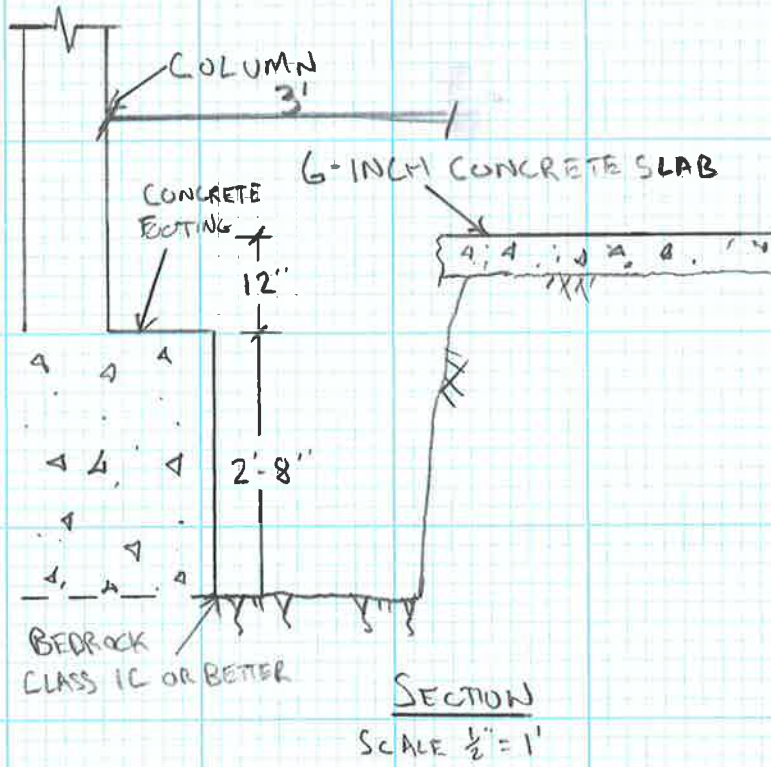 COLUMN
3'
6-INCH CONCRETE SLAB
CONCRETE
FOOTING
12"
2'-8"
BEDROCK
CLASS 1C OR BETTER
SECTION
SCALE ½" = 1'